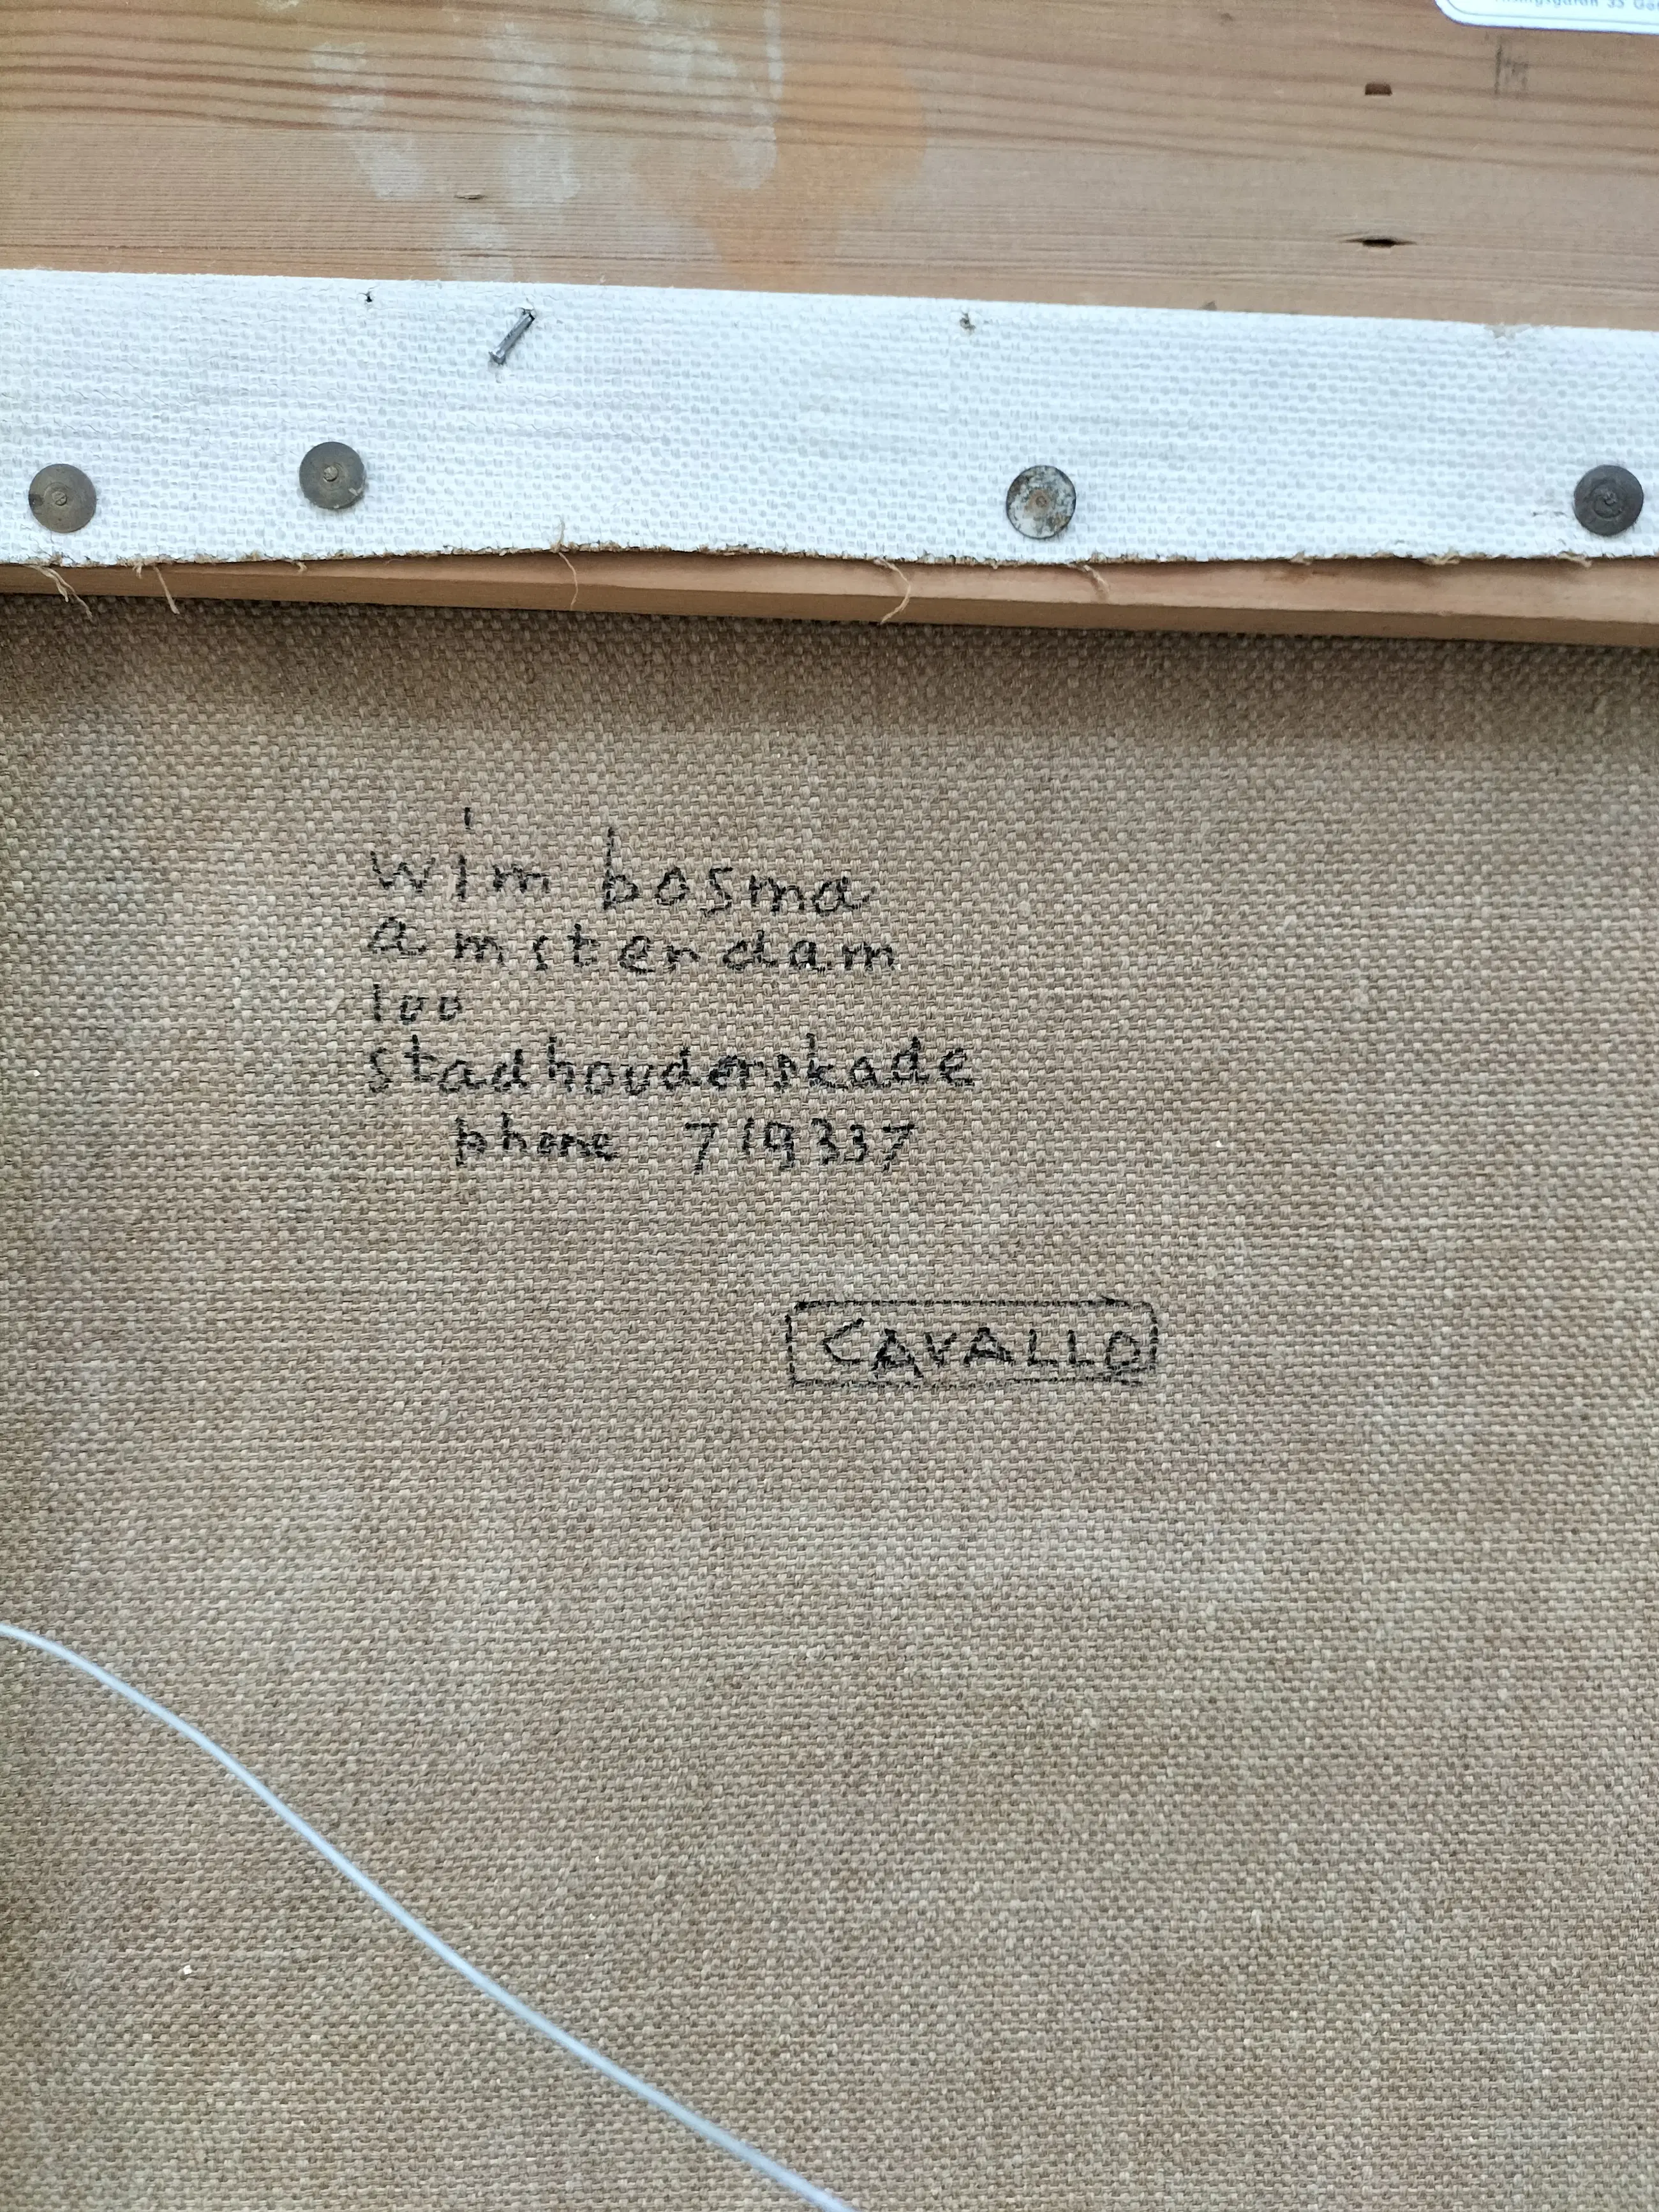 33
wim bosma
amsterdam
100
stadhouderskade
phone 719337
CAVALLO